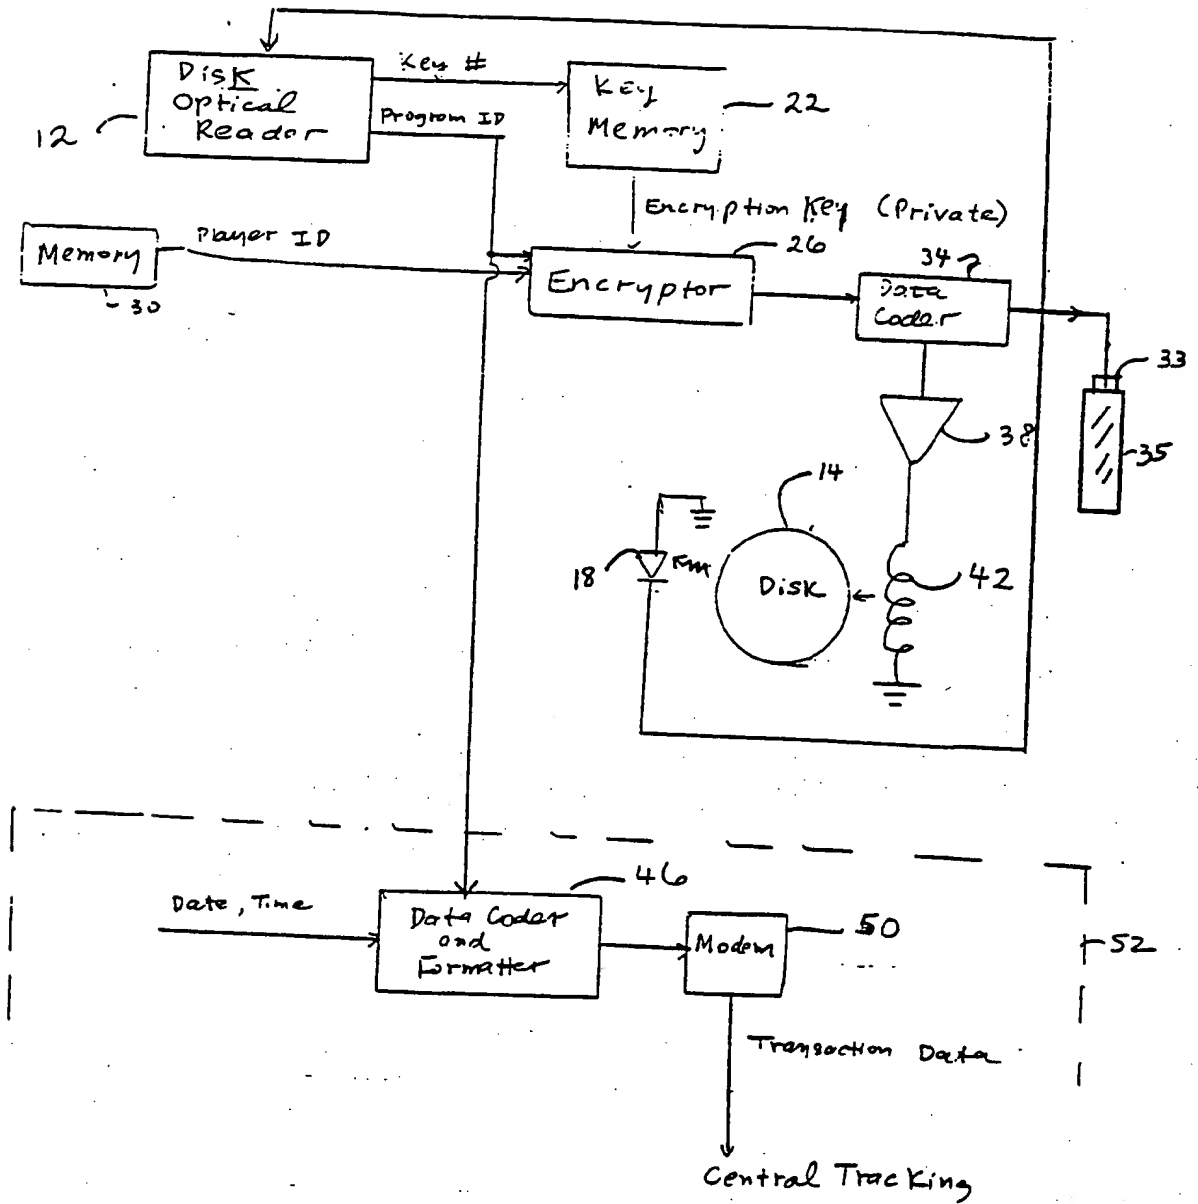 Disk
Optical
Reader
12
Key #
Program ID
Key
Memory
22
Encryption Key (Private)
Memory
30
Player ID
Encryptor
26
Data
Coder
34
33
35
38
14
Disk
18
42
Date, Time
Data Coder
and
Formatter
46
Modem
50
52
Transaction Data
Central Tracking